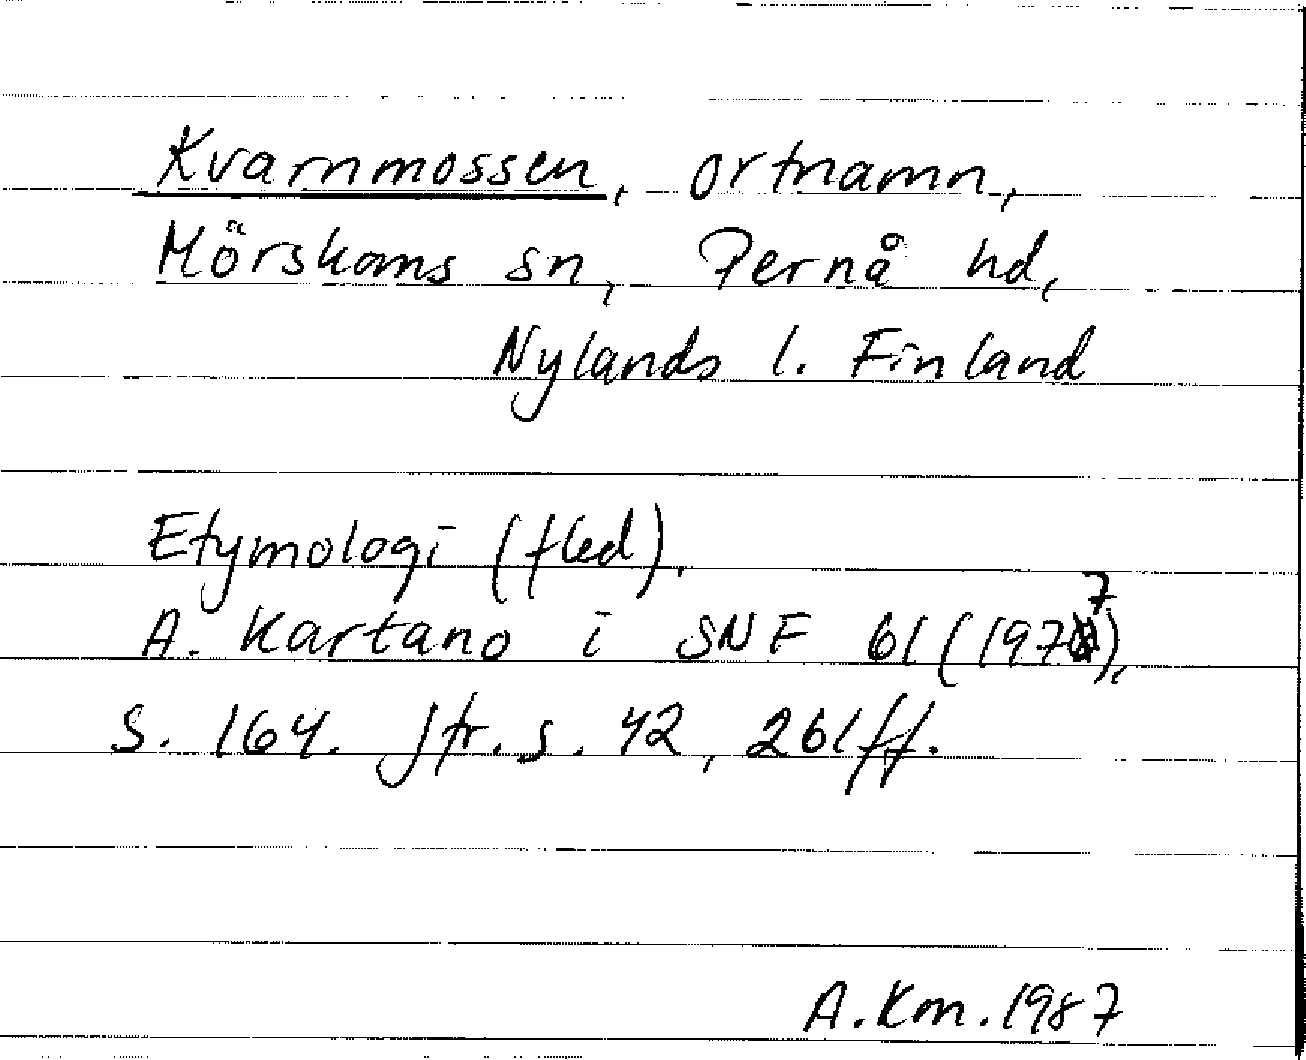 Kvarnmossen, ortnamn,
Mörskoms sn, Pernå hd,
Nylands l. Finland
Etymologi (fled).
A. Kartano i SNF 61 (1977),
s. 164. Jfr. s. 42, 261ff.
A.Km.1987